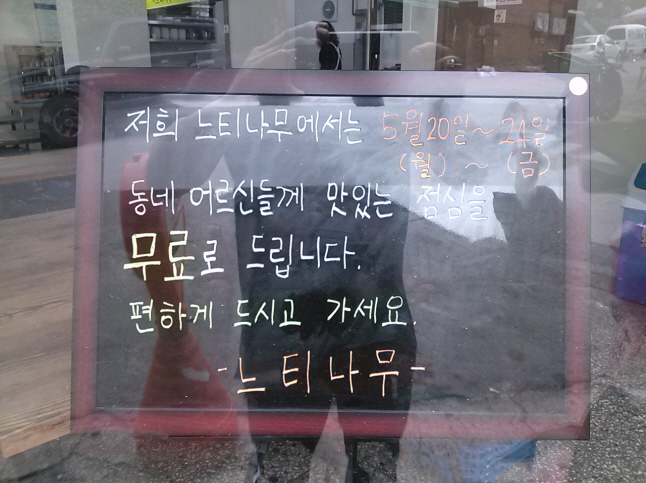 저희 느티나무에서는 5월20일~24일
(월) ~ (금)
동네 어르신들께 맛있는 점심을
무료로 드립니다.
편하게 드시고 가세요.
-느티나무-